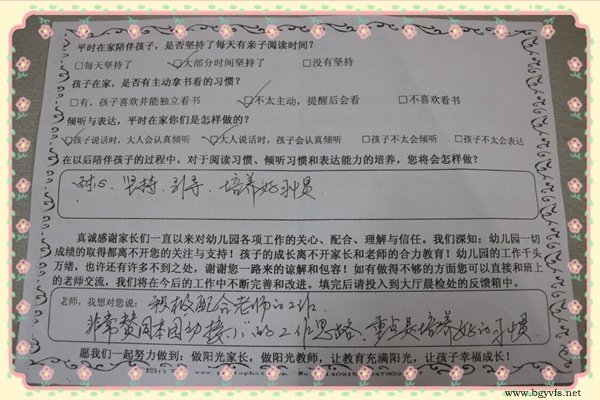 平时在家陪伴孩子，是否坚持了每天有亲子阅读时间？
□每天坚持了 □大部分时间坚持了 □没有坚持
孩子在家，是否有主动拿书看的习惯？
□有，孩子喜欢并能独立看书 □不太主动，提醒后会看 □不喜欢看书
倾听与表达，平时在家你们是怎样做的？
□孩子说话时，大人会认真倾听 □大人说话时，孩子会认真倾听 □孩子不太会倾听 □孩子不太会表达
在以后陪伴孩子的过程中，对于阅读习惯、倾听习惯和表达能力的培养，您将会怎样做？
耐心、坚持、引导、培养好习惯
真诚感谢家长们一直以来对幼儿园各项工作的关心、配合、理解与信任。我们深知：幼儿园一切
成绩的取得都离不开您的关注与支持！孩子的成长离不开家长和老师的合力教育！幼儿园的工作千头
万绪，也许还有许多不到之处，谢谢您一路来的谅解和包容！如有做得不够的方面您可以直接和班上
的老师交流，我们将在今后的工作中不断完善和改进。填完后请投入到大厅晨检处的反馈箱中。
老师，我想对您说：积极配合老师的工作
非常赞同本园幼接小的工作思路，重点是培养好的习惯
愿我们一起努力做到：做阳光家长，做阳光教师，让教育充满阳光，让孩子幸福成长！
www.bgyvfs.net